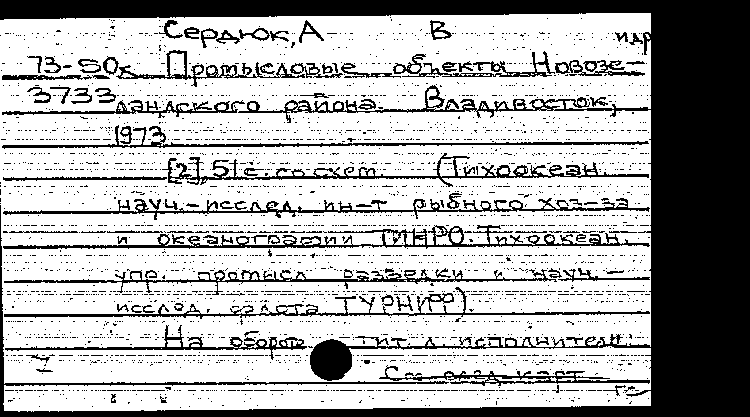 Сердюк, А В и др
73-50к Промысловые объекты Новозе-
3733 ландского района. Владивосток,
1973
[2], 51 с. со схем. (Тихоокеан.
науч.-исслед. ин-т рыбного хоз-ва
и океанографии ТИНРО. Тихоокеан.
упр. промысл разведки и науч.-
исслед. флота ТУРНИФ).
На обороте тит л исполнители:
См след карт